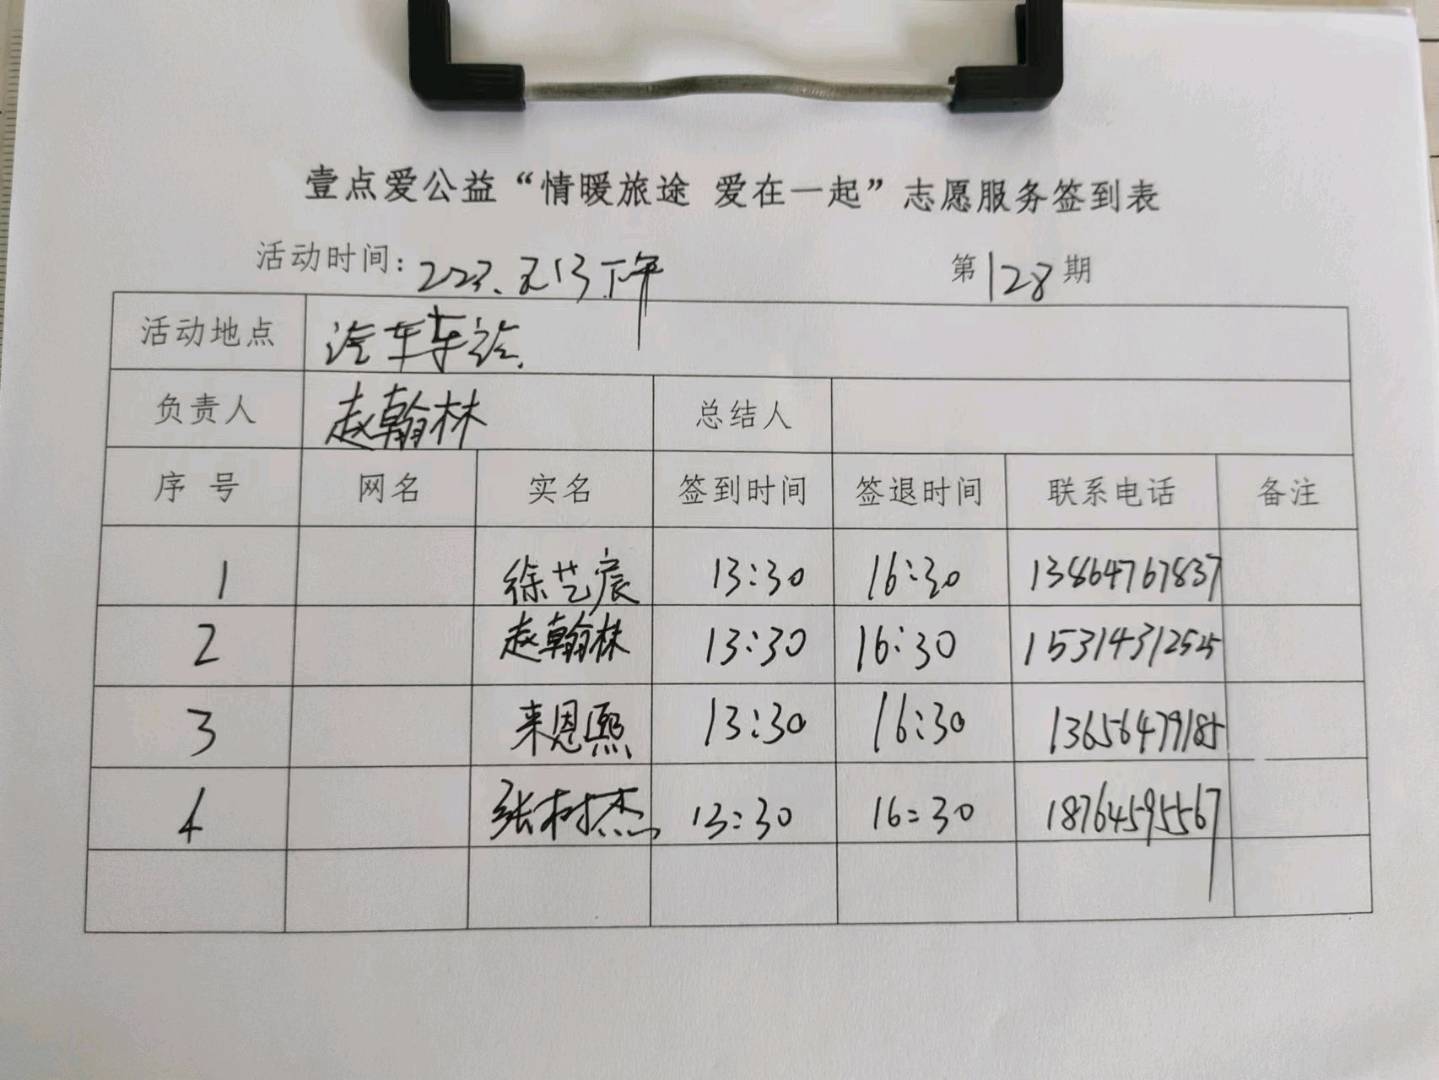 壹点爱公益“情暖旅途 爱在一起”志愿服务签到表
活动时间: 下午 第128期
活动地点 汽车车站
负责人 赵翰林 总结人
序号 网名 实名 签到时间 签退时间 联系电话 备注
1 徐艺宸 13:30 16:30 13864767837
2 赵翰林 13:30 16:30 15314312525
3 来恩熙 13:30 16:30 13656479185
4 张树杰 13:30 16:30 18764595567